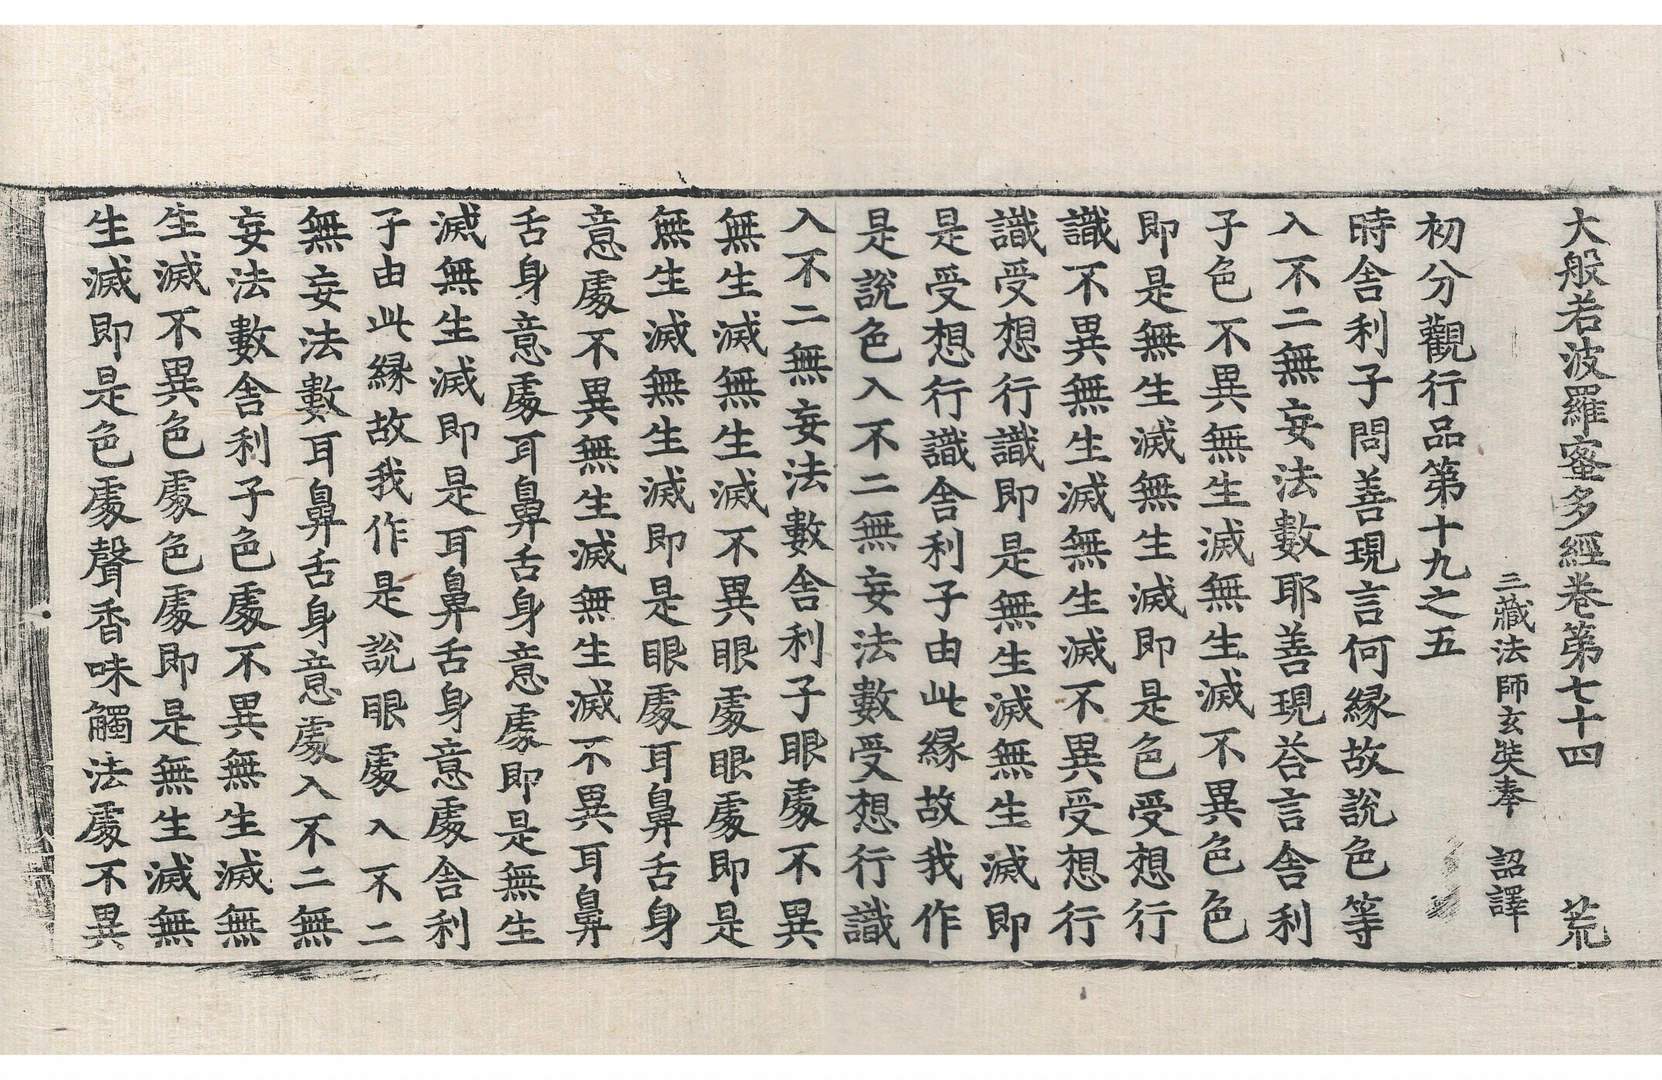 大般若波羅蜜多經卷第七十四 荒
三藏法師玄奘奉 詔譯
初分觀行品第十九之五
時舍利子問善現言何縁故說色等
入不二無妄法數耶善現荅言舍利
子色不異無生滅無生滅不異色色
即是無生滅無生滅即是色受想行
識不異無生滅無生滅不異受想行
識受想行識即是無生滅無生滅即
是受想行識舍利子由此縁故我作
是說色入不二無妄法數受想行識
入不二無妄法數舍利子眼處不異
無生滅無生滅不異眼處眼處即是
無生滅無生滅即是眼處耳鼻舌身
意處不異無生滅無生滅不異耳鼻
舌身意處耳鼻舌身意處即是無生
滅無生滅即是耳鼻舌身意處舍利
子由此縁故我作是說眼處入不二
無妄法數耳鼻舌身意處入不二無
妄法數舍利子色處不異無生滅無
生滅不異色處色處即是無生滅無
生滅即是色處聲香味觸法處不異